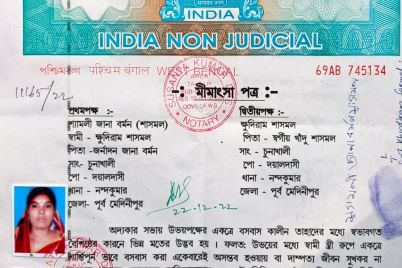 INDIA
INDIA NON JUDICIAL
পশ্চিমবঙ্গ पश्चिम बंगाल WEST BENGAL
69AB 745134
11165/22
SUSANTA KUMAR
NOTARY
-: মীমাংসা পত্র :-
প্রথমপক্ষ :
শ্যামলী জানা বর্মন (শাসমল)
স্বামী - ক্ষুদিরাম শাসমল
পিতা -জনার্দন জানা বর্মন
সাং - চুনাখালী
পো - দয়ালদাসী
থানা - নন্দকুমার
জেলা- পূর্ব মেদিনীপুর
দ্বিতীয়পক্ষ :
ক্ষুদিরাম শাসমল
পিতা - স্বর্গীয় খাঁদু শাসমল
সাং- চুনাখালী
পো - দয়ালদাসী
থানা - নন্দকুমার
জেলা- পূর্ব মেদিনীপুর
22-12-22
অদ্যকার সভায় উভয়পক্ষের একত্রে বসবাস কালীন তাহাদের মধ্যে স্বভাবগত
বৈশিষ্ঠের কারনে ভিন্ন মতের উদ্ভব হয় । ফলতঃ উভয়ের মধ্যে স্বামী স্ত্রী রূপে একত্রে
শান্তিপূর্ন ভাবে বসবাস করা একেবারেই অসম্ভব হওয়ায় বা দাম্পত্য জীবন সুখকর না